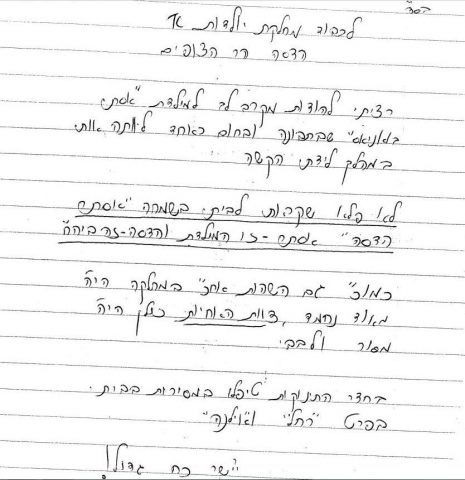 בסד
לכבוד מחלקת יולדות א'
הדסה הר הצופים
רציתי להודות מקרב לב למילדת "אסתי
שבתבונה ובחום כאחד ליוותה אותי
במהלך לידתי הקשה
לא פלא שקראתי לבתי בשמחה "אסתר
הדסה" אסתר - זו המילדת והדסה - זה ביה"ח
כמו"כ גם השהות אח"כ במחלקה היה
מאוד נחמד, צוות האחיות כולן היה
מסור ולבבי.
בחדר התינוקות טיפלו במסירות בבתי.
בפרט "רחל" ו"אילנה"
יישר כח גדול!